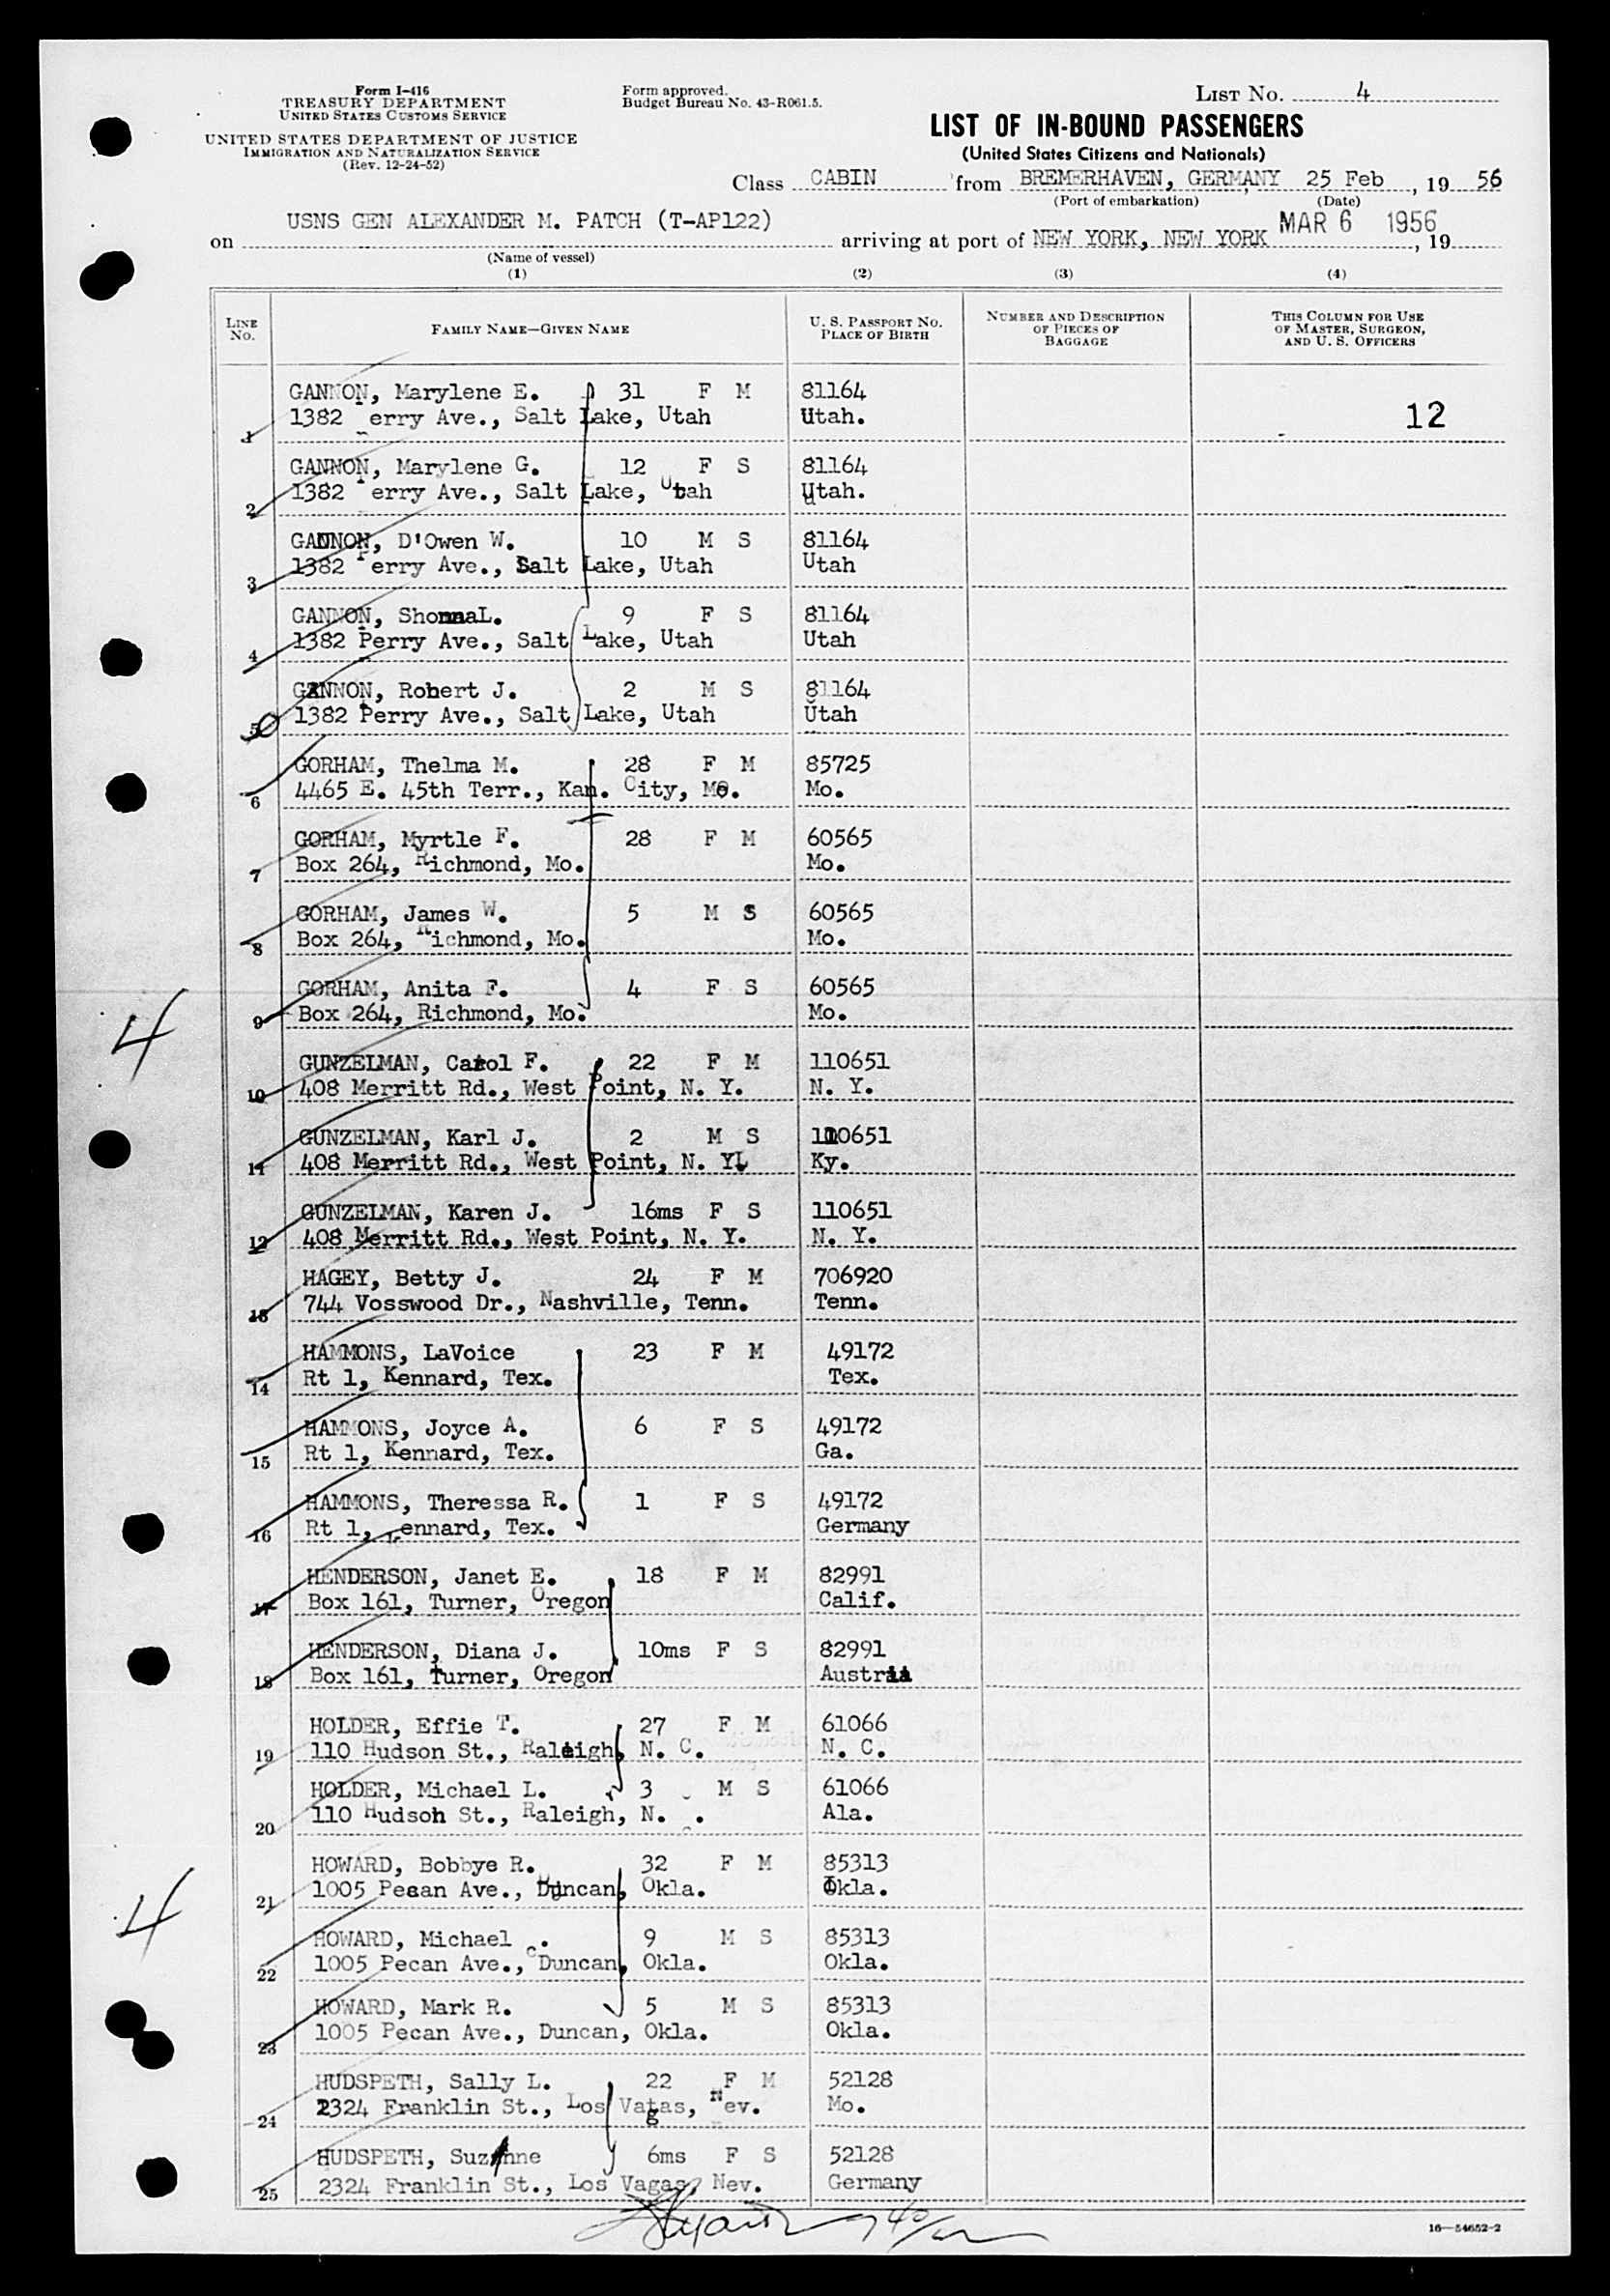 Form I-416
TREASURY DEPARTMENT
UNITED STATES CUSTOMS SERVICE
UNITED STATES DEPARTMENT OF JUSTICE
IMMIGRATION AND NATURALIZATION SERVICE
(Rev. 12-24-52)
Form approved.
Budget Bureau No. 43-R061.5.
LIST No. 4
LIST OF IN-BOUND PASSENGERS
(United States Citizens and Nationals)
Class CABIN from BREMERHAVEN, GERMANY 25 Feb , 19 56
(Port of embarkation) (Date)
on USNS GEN ALEXANDER M. PATCH (T-AP122) arriving at port of NEW YORK, NEW YORK MAR 6 1956 , 19
(Name of vessel)
(1) (2) (3) (4)
LINE No. FAMILY NAME—GIVEN NAME U. S. PASSPORT No. PLACE OF BIRTH NUMBER AND DESCRIPTION OF PIECES OF BAGGAGE THIS COLUMN FOR USE OF MASTER, SURGEON, AND U. S. OFFICERS
GANNON, Marylene E. 31 F M 81164
1 1382 erry Ave., Salt Lake, Utah Utah. 12
GANNON, Marylene G. 12 F S 81164
2 1382 erry Ave., Salt Lake, Utah Utah.
GANNON, D'Owen W. 10 M S 81164
3 1382 Perry Ave., Salt Lake, Utah Utah
GANNON, ShonnaL. 9 F S 81164
4 1382 Perry Ave., Salt Lake, Utah Utah
GANNON, Robert J. 2 M S 81164
5 1382 Perry Ave., Salt Lake, Utah Utah
GORHAM, Thelma M. 28 F M 85725
6 4465 E. 45th Terr., Kan. City, Mo. Mo.
GORHAM, Myrtle F. 28 F M 60565
7 Box 264, Richmond, Mo. Mo.
GORHAM, James W. 5 M S 60565
8 Box 264, Richmond, Mo. Mo.
GORHAM, Anita F. 4 F S 60565
9 Box 264, Richmond, Mo. Mo.
4
GUNZELMAN, Carol F. 22 F M 110651
10 408 Merritt Rd., West Point, N. Y. N. Y.
GUNZELMAN, Karl J. 2 M S 110651
11 408 Merritt Rd., West Point, N. Y. Ky.
GUNZELMAN, Karen J. 16ms F S 110651
12 408 Merritt Rd., West Point, N. Y. N. Y.
HAGEY, Betty J. 24 F M 706920
13 744 Vosswood Dr., Nashville, Tenn. Tenn.
HAMMONS, LaVoice 23 F M 49172
14 Rt 1, Kennard, Tex. Tex.
HAMMONS, Joyce A. 6 F S 49172
15 Rt 1, Kennard, Tex. Ga.
HAMMONS, Theressa R. 1 F S 49172
16 Rt 1, Kennard, Tex. Germany
HENDERSON, Janet E. 18 F M 82991
17 Box 161, Turner, Oregon Calif.
HENDERSON, Diana J. 10ms F S 82991
18 Box 161, Turner, Oregon Austria
HOLDER, Effie T. 27 F M 61066
19 110 Hudson St., Raleigh, N. C. N. C.
HOLDER, Michael L. 3 M S 61066
20 110 Hudson St., Raleigh, N. C. Ala.
HOWARD, Bobbye R. 32 F M 85313
21 1005 Pecan Ave., Duncan, Okla. Okla.
4
HOWARD, Michael C. 9 M S 85313
22 1005 Pecan Ave., Duncan, Okla. Okla.
HOWARD, Mark R. 5 M S 85313
23 1005 Pecan Ave., Duncan, Okla. Okla.
HUDSPETH, Sally L. 22 F M 52128
24 2324 Franklin St., Los Vagas, Nev. Mo.
HUDSPETH, Suzanne 6ms F S 52128
25 2324 Franklin St., Los Vagas, Nev. Germany
16—54652-2